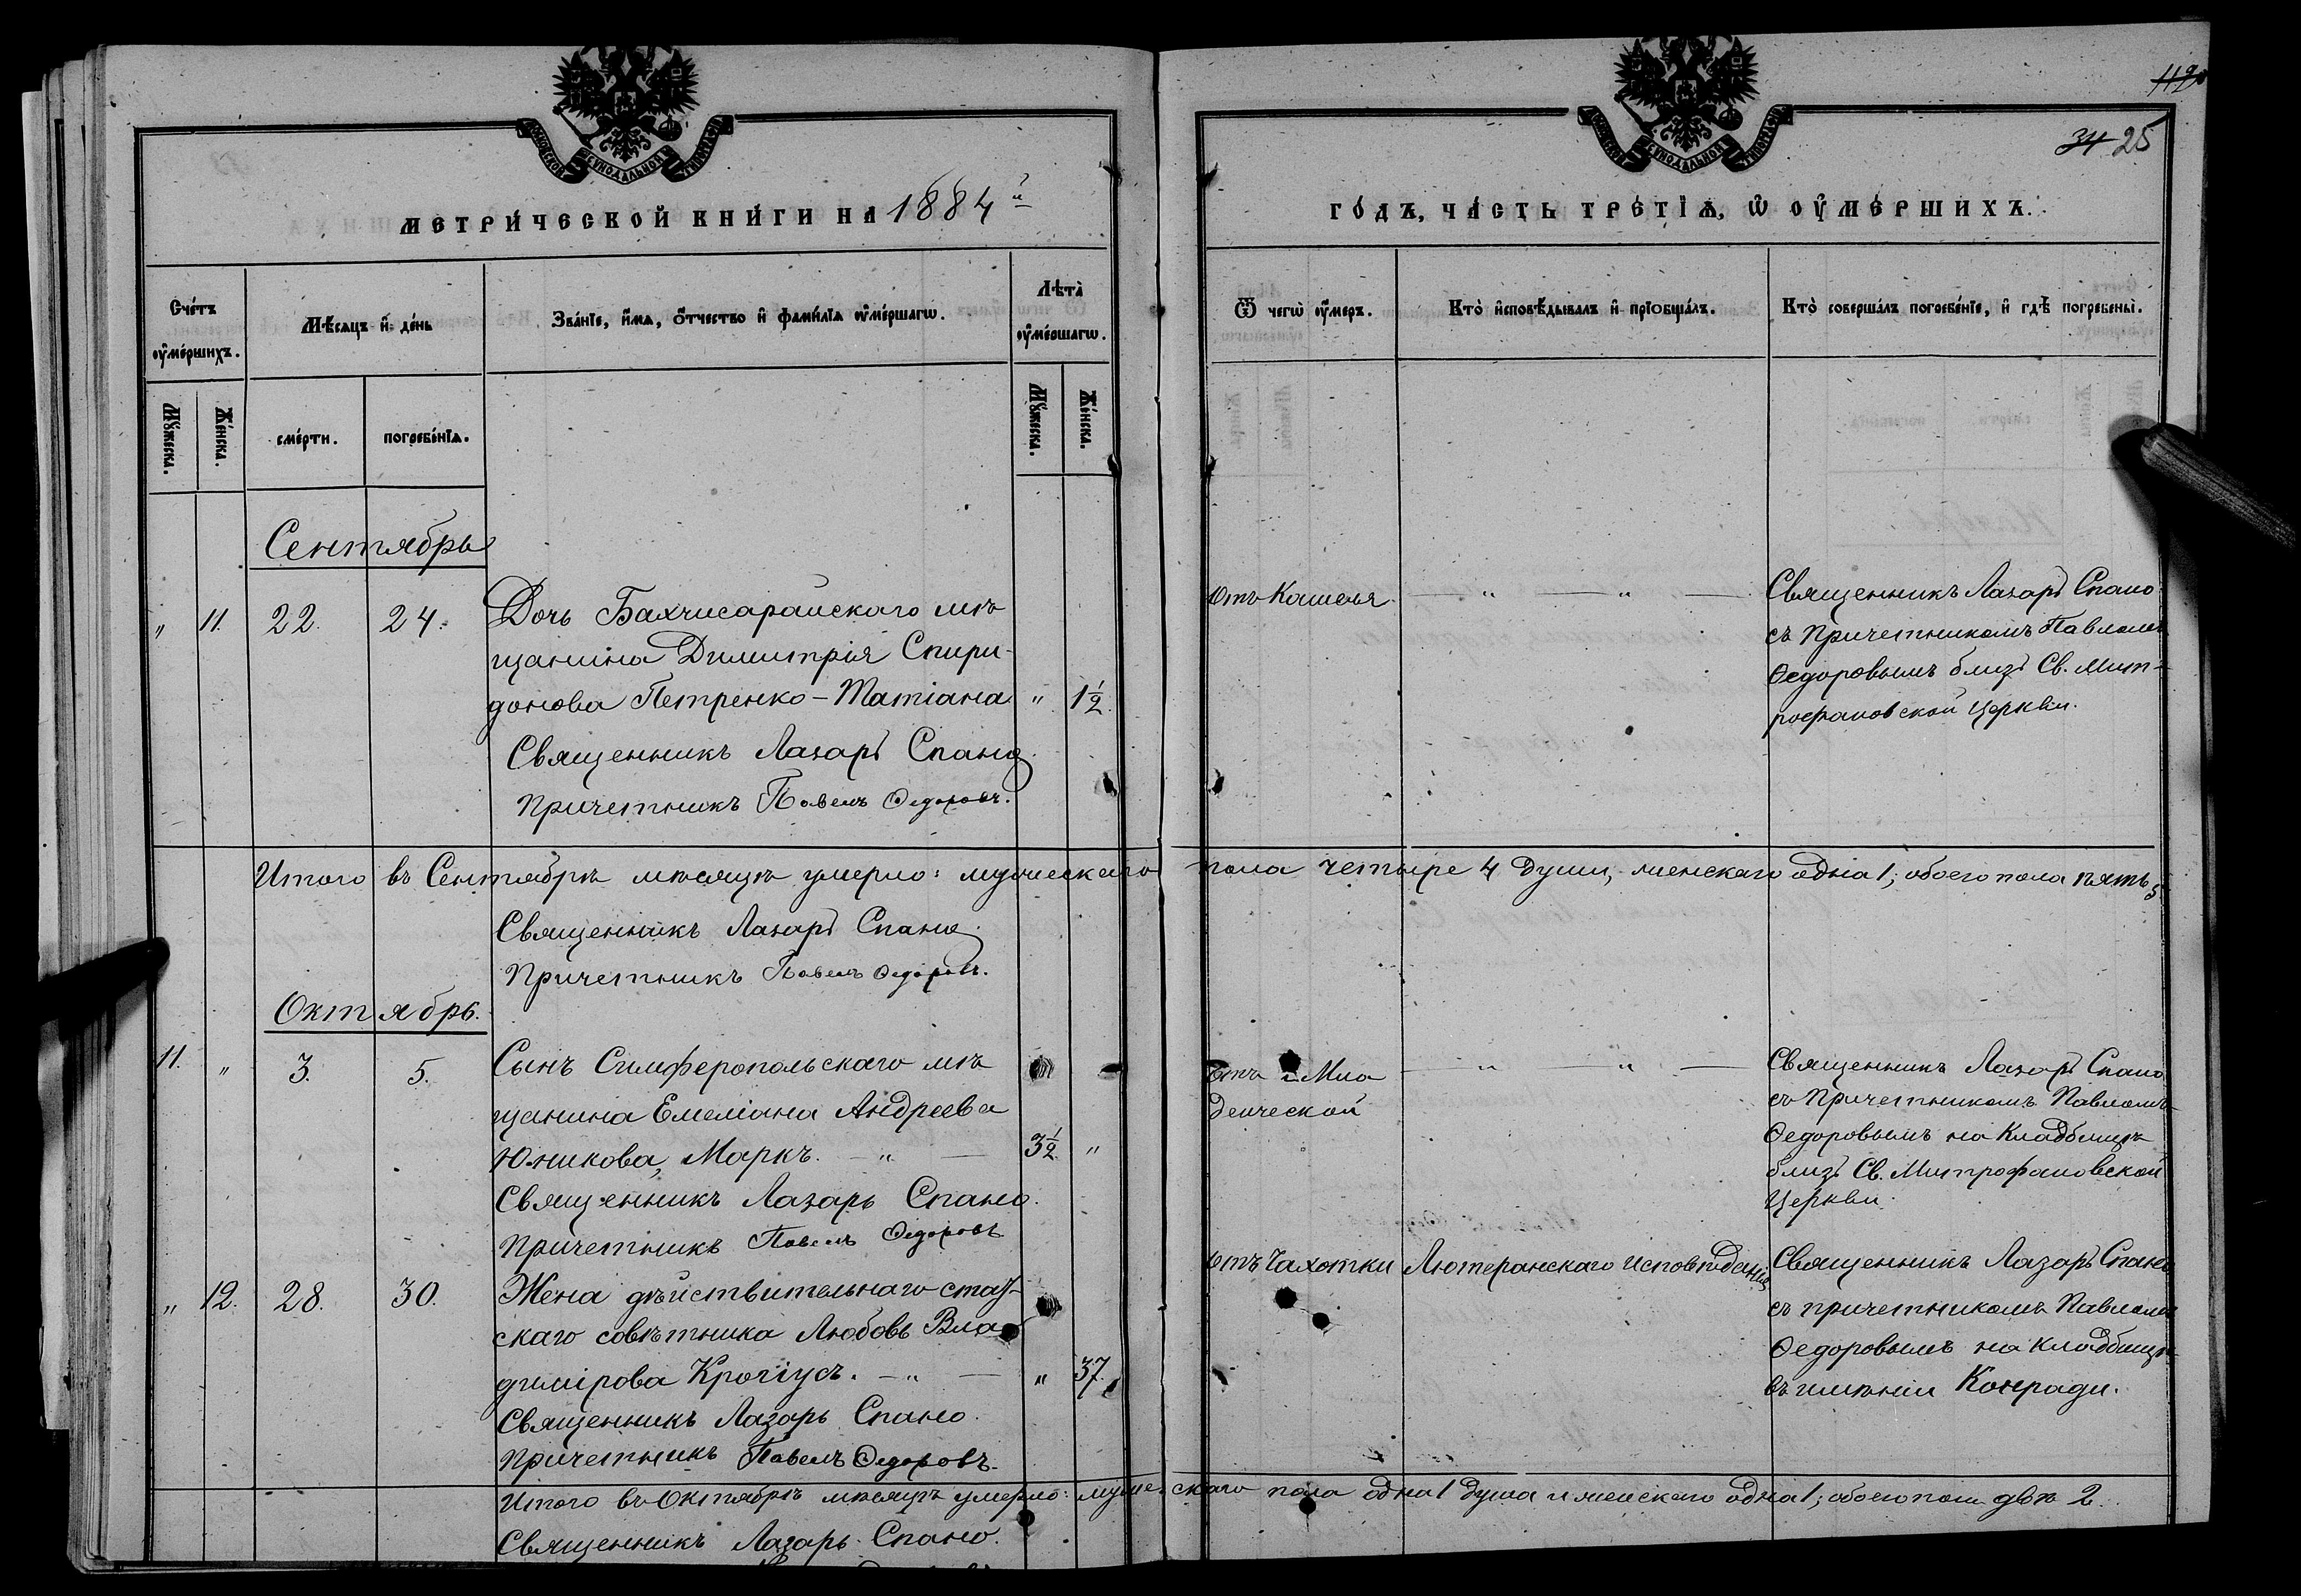 112
34 25
МЕТРИЧЕСКОЙ КНИГИ НА 1884й
ГОДЪ, ЧАСТЬ ТРЕТІѦ, Ѿ ОУМЕРШИХЪ.
Счетъ оумершихъ.
Мѣсяцъ и день
Званіе, имя, отчество и фамиліѧ оумершагѡ.
Лѣта оумершагѡ.
Ѿ чегѡ оумеръ.
Кто исповѣдывалъ и пріобщалъ.
Кто совершалъ погребеніе, и гдѣ погребены.
Мужеска.
Женска.
смерти.
погребеніѧ.
Мужеска.
Женска.
Сентябрь
" 11. 22. 24. Дочь Бахчисарайскаго мѣ
щанина Димитрія Спири-
донова Петренко - Татіана " 1½
Священникъ Лазарь Спано
Причетникъ Павелъ Ѳедоровъ.
отъ Кашеля — " — " —
Священникъ Лазарь Спано
съ Причетникомъ Павломъ
Ѳедоровымъ близь Св. Мит-
рофановской Церкви.
Итого въ Сентябрѣ мѣсяцѣ умерло: мужескаго пола четыре 4 души, женскаго одна 1; обоего пола пять 5
Священникъ Лазарь Спано
Причетникъ Павелъ Ѳедоровъ.
Октябрь.
11. " 3. 5. Сынъ Симферопольскаго мѣ
щанина Емеліана Андреева
Юникова, Маркъ. — " — 3½ "
Священникъ Лазарь Спано.
Причетникъ Павелъ Ѳедоровъ
отъ Мла
денческой
— " — " —
Священникъ Лазарь Спано
съ Причетникомъ Павломъ
Ѳедоровымъ на Кладбищѣ
близь Св. Митрофановской
Церкви.
" 12. 28. 30. Жена дѣйствительнаго стат-
скаго совѣтника Любовь Вла
димірова Кроніусъ. — " — " 37.
Священникъ Лазарь Спано.
Причетникъ Павелъ Ѳедоровъ.
отъ Чахотки
Лютеранскаго исповѣданія
Священникъ Лазарь Спано
съ причетникомъ Павломъ
Ѳедоровымъ на кладбищѣ
въ имѣніи Конради.
Итого въ Октябрѣ мѣсяцѣ умерло: мужескаго пола одна 1 душа и женскаго одна 1; обоего пола двѣ 2.
Священникъ Лазарь Спано.